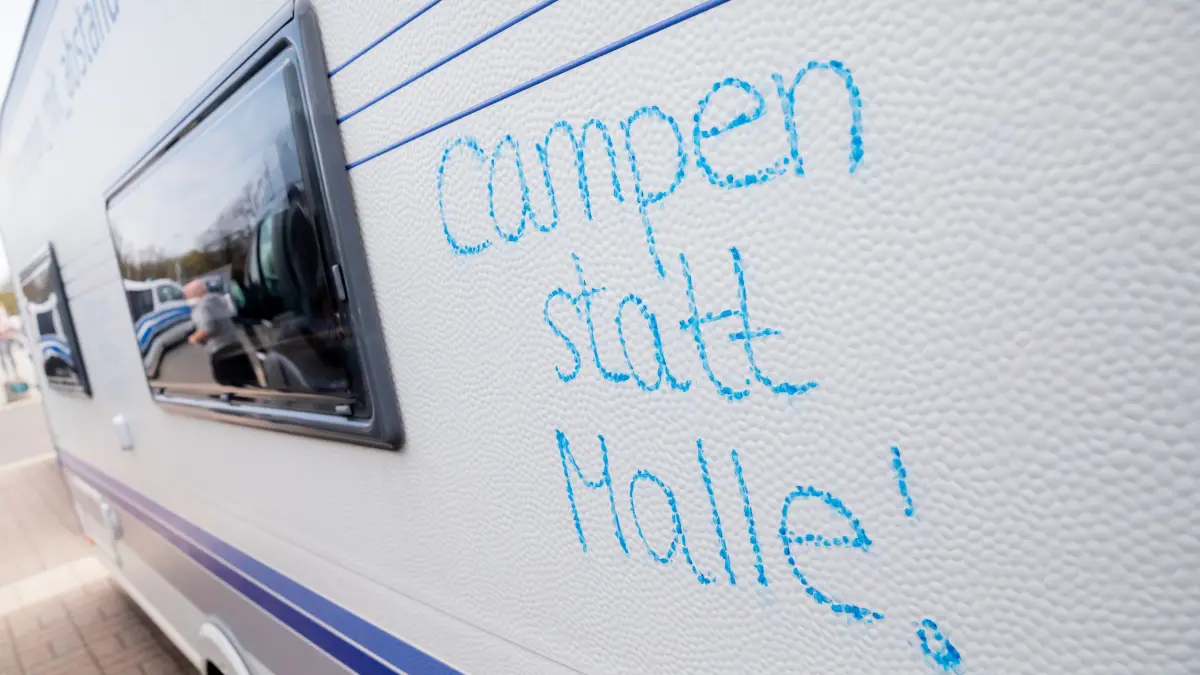 abstand
campen
statt
Malle!